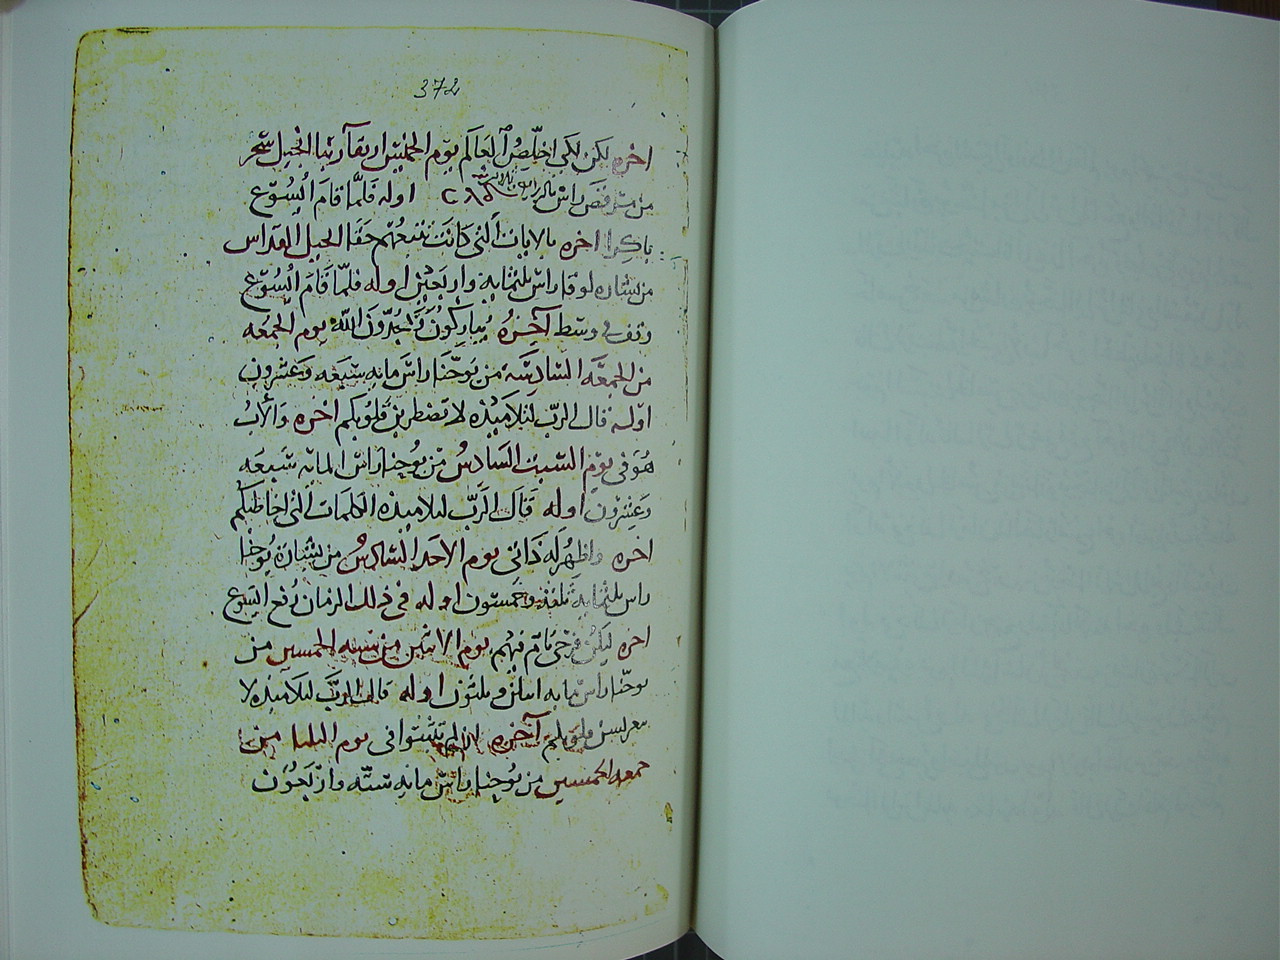 372
اخره لكن لكي اخلّص العالم يوم الخميس اربعا رتبا انجيل سحر
من مرقص راس اوله فلمّا قام اليسوع
باكرا اخره بالايات التي كانت تتبعهم حقا انجيل القداس
من بشاره لوقا راس ثلثمايه واربعين اوله فلمّا قام اليسوع
وقف في وسط آخره يباركون ويمجّدون الله يوم الجمعه
من الجمعه السادسه من يوحنا راس مايه سبعه وعشرون
اوله قال الربّ لتلاميذه لا تضطربن قلوبكم اخره والاب
هو في يوم السبت السادس من يوحنا راس المايه سبعه
وعشرون اوله قال الربّ لتلاميذه الكلمات التي اخاطبكم
اخره واظهر له ذاتي يوم الاحد السادس من بشارة يوحنا
راس ثلثمايه وخمسون اوله في ذلك الزمان رفع اليسوع
اخره ليكن فرحي تام فيهم يوم الاثنين من سبه الخمسين من
يوحنا راس مايه اثنان وثلثون اوله قال الربّ لتلاميذه لا
قلوبكم آخره في يوم الثلثا من
جمعه الخمسين من يوحنا راس مايه ستّه واربعون